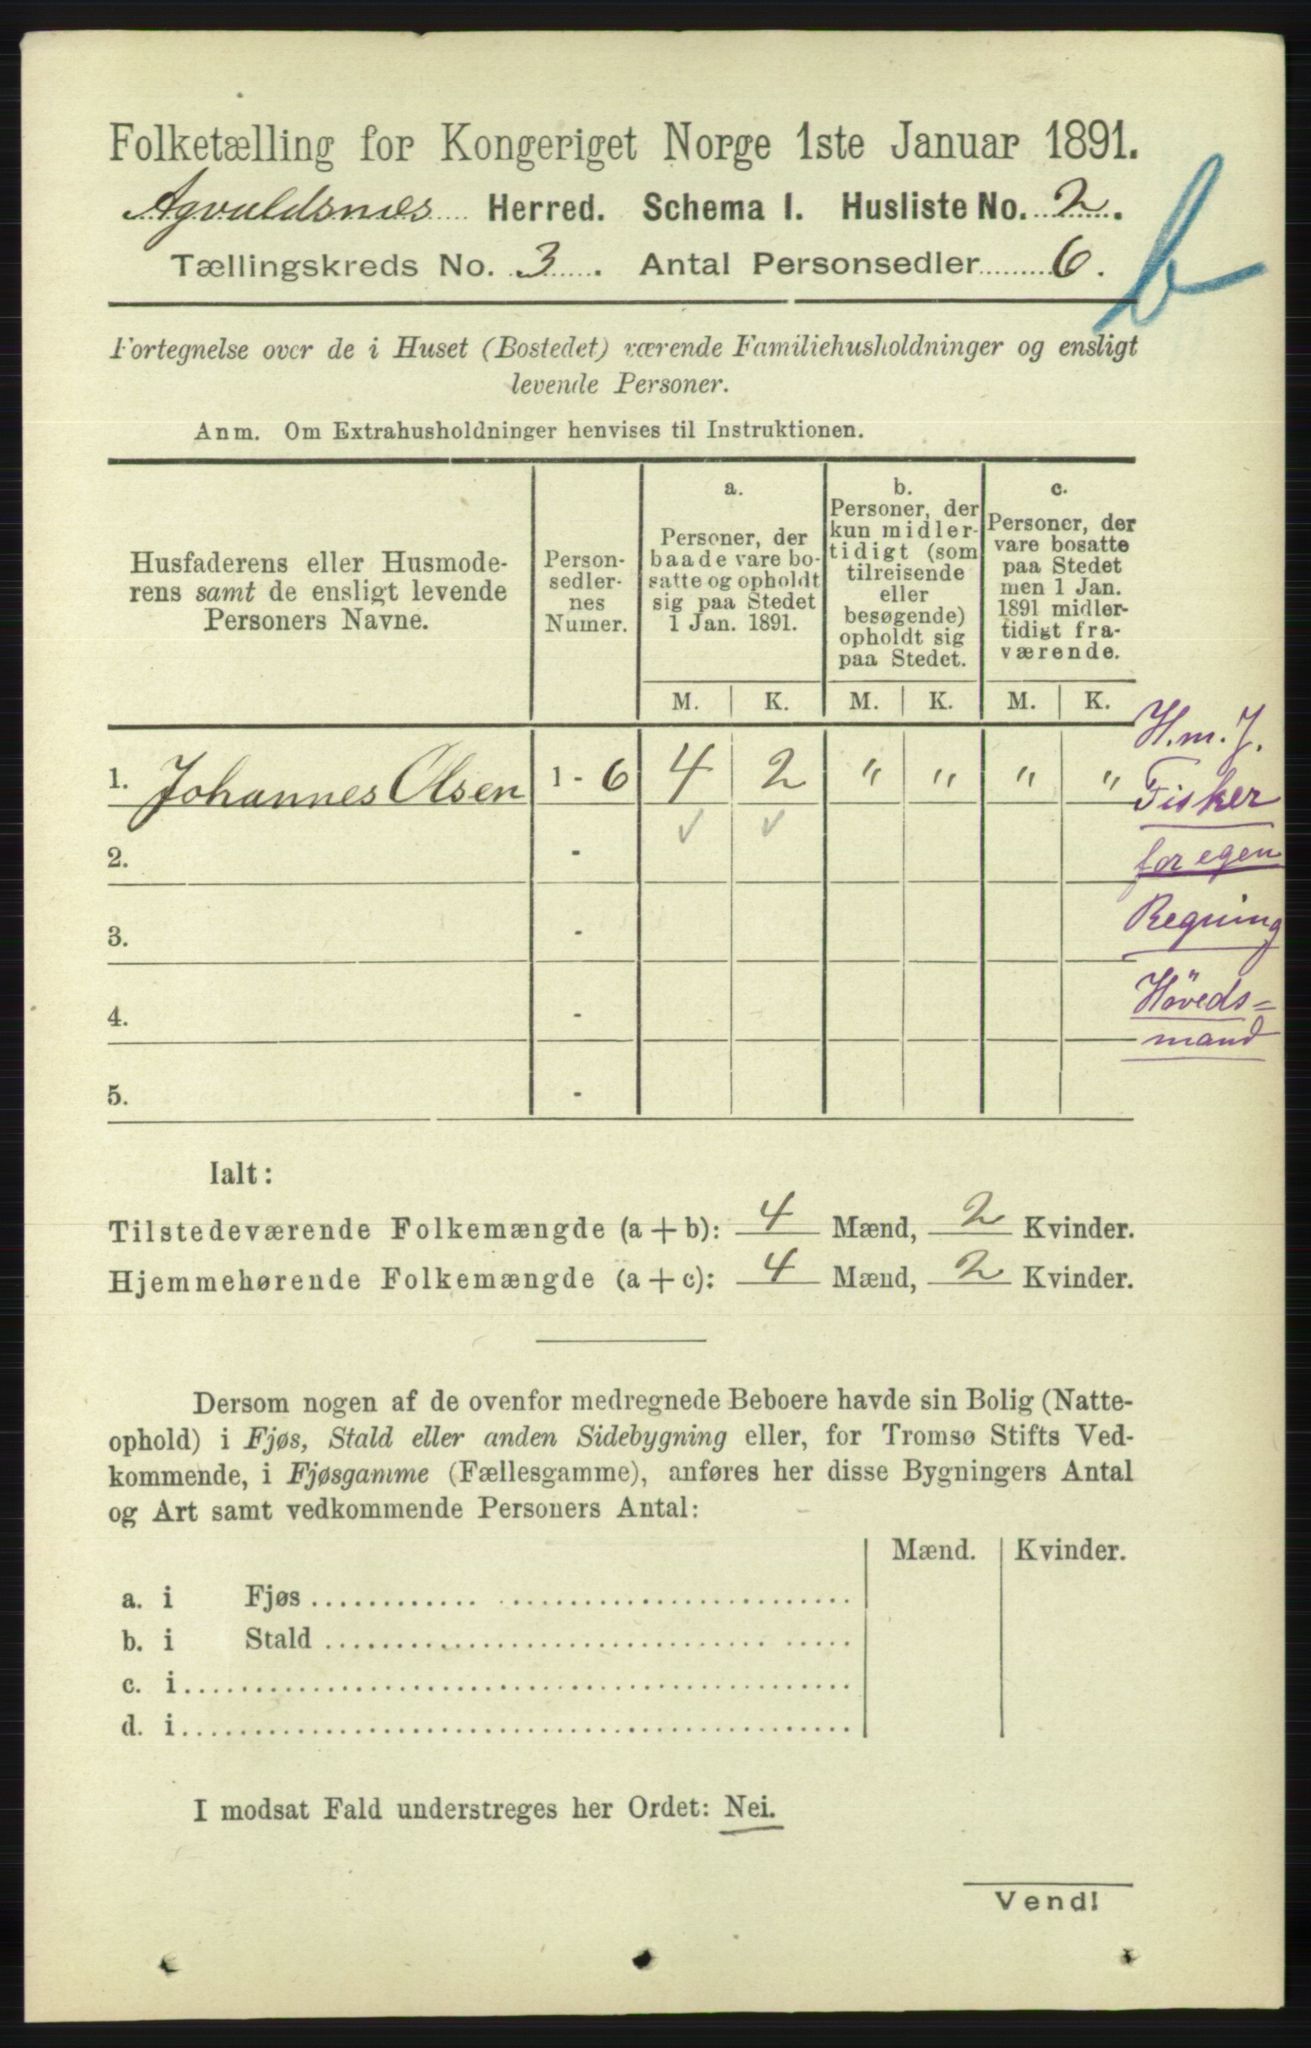 Folketælling for Kongeriget Norge 1ste Januar 1891.
Agvaldsnæs Herred. Schema I. Husliste No. 2.
Tællingskreds No. 3. Antal Personsedler 6.
b
Fortegnelse over de i Huset (Bostedet) værende Familiehusholdninger og ensligt
levende Personer.
Anm. Om Extrahusholdninger henvises til Instruktionen.
Husfaderens eller Husmode-
rens samt de ensligt levende
Personers Navne.
Person-
sedler-
nes
Numer.
a.
Personer, der
baade vare bo-
satte og opholdt
sig paa Stedet
1 Jan. 1891.
b.
Personer, der
kun midler-
tidigt (som
tilreisende
eller
besøgende)
opholdt sig
paa Stedet.
c.
Personer, der
vare bosatte
paa Stedet
men 1 Jan.
1891 midler-
tidigt fra-
værende.
M. K. M. K. M. K.
1. Johannes Olsen 1 - 6 4 2 " " " "
2. -
3. -
4. -
5. -
H.m.J.
Fisker
for egen
Regning
Høveds=
mand
Ialt:
Tilstedeværende Folkemængde (a + b): 4 Mænd, 2 Kvinder.
Hjemmehørende Folkemængde (a + c): 4 Mænd, 2 Kvinder.
Dersom nogen af de ovenfor medregnede Beboere havde sin Bolig (Natte-
ophold) i Fjøs, Stald eller anden Sidebygning eller, for Tromsø Stifts Ved-
kommende, i Fjøsgamme (Fællesgamme), anføres her disse Bygningers Antal
og Art samt vedkommende Personers Antal:
Mænd. Kvinder.
a. i Fjøs
b. i Stald
c. i
d. i
I modsat Fald understreges her Ordet: Nei.
Vend!